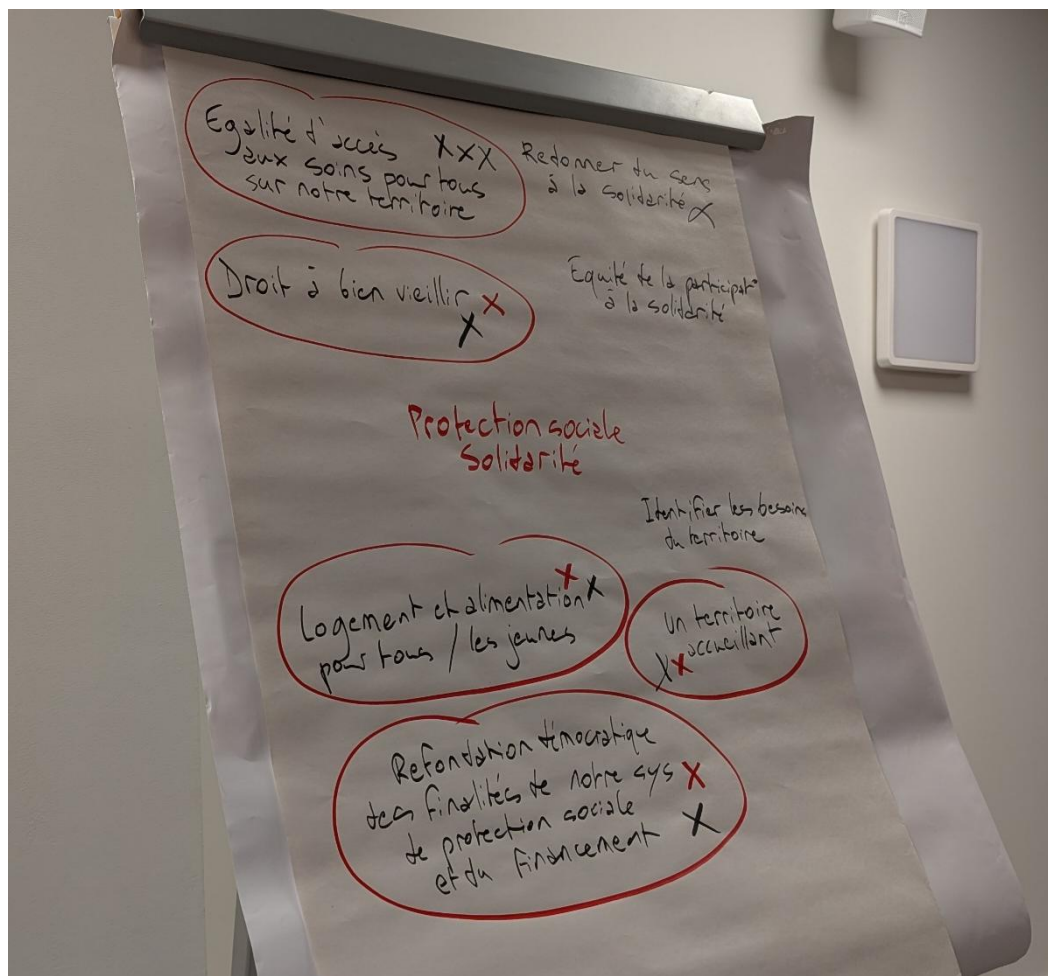 Egalité d'accès XXX
aux soins pour tous
sur notre territoire
Redonner du sens
à la solidarité X
Droit à bien vieillir X
X
Equité de la participat°
à la solidarité
Protection sociale
Solidarité
Identifier les besoins
du territoire
Logement et alimentation X X
pour tous / les jeunes
Un territoire
accueillant
X X
Refondation démocratique
des finalités de notre sys X
de protection sociale
et du financement X